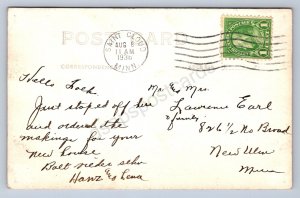 POST CARD
CORRESPONDENCE
SAINT CLOUD
AUG 8
11 AM
1936
MINN.
Hello Folk
Just stoped off here
and ordered the
makings for your
new house
Hanz & Lena
Mr & Mrs
Lawrence Earl
& family
826 1/2 No Broad
New Ulm
Minn